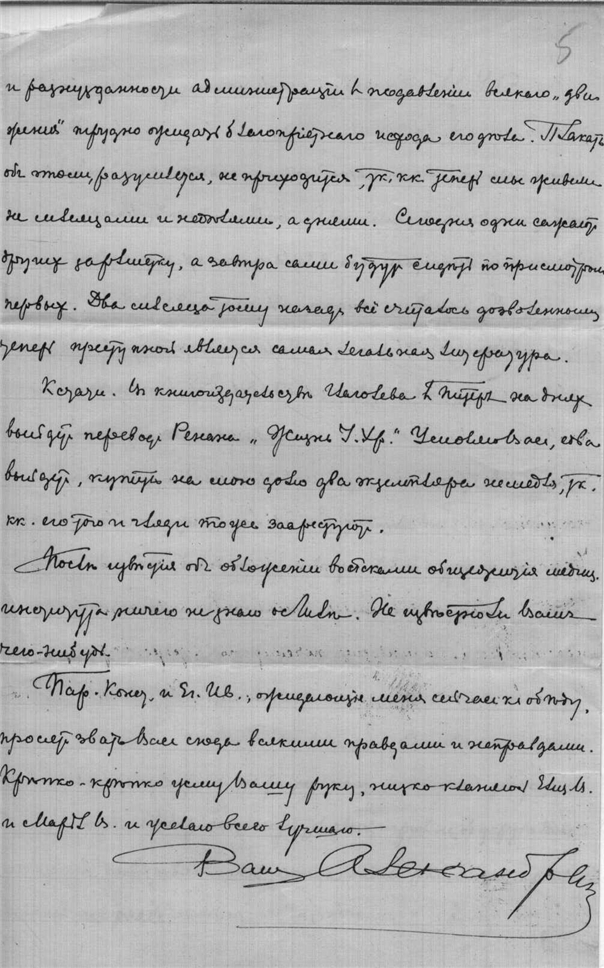 5
и разнузданности администраціи в подавленіи всякаго „дви
женія" трудно ожидать благопріятнаго исхода его дѣла. Плакать
объ этомъ, разумѣется, не приходится, т. кк. теперь мы живемъ
не мѣсяцами и недѣлями, а днями. Сегодня одни сажаютъ
другихъ за рѣшетку, а завтра сами будутъ сидѣть по присмотромъ
первыхъ. Два мѣсяца тому назадъ всё считалось дозволеннымъ
теперь преступной является самая легальная литература.
Кстати. Въ книгоиздательствѣ в Питерѣ на дняхъ
выйдетъ переводъ Ренана „Жизнь І. Хр." Умоляю Васъ, едва
выйдетъ, купить на мою долю два экземпляра немедля, т.
кк. его того и гляди тоже заарестуютъ.
Послѣ извѣстія объ обложеніи войсками общежитія медиц.
института ничего не знаю о Лилѣ. Не извѣстно ли Вамъ
чего-нибудь.
Пар. Конст. и Ег. Ив., ожидающіе меня сейчасъ къ обѣду,
просятъ звать Васъ сюда всякими правдами и неправдами.
Крѣпко-крѣпко жму Вашу руку, низко кланяюсь Елиз. В.
и Марьѣ В. и желаю всего лучшаго.
Вашъ Александръ